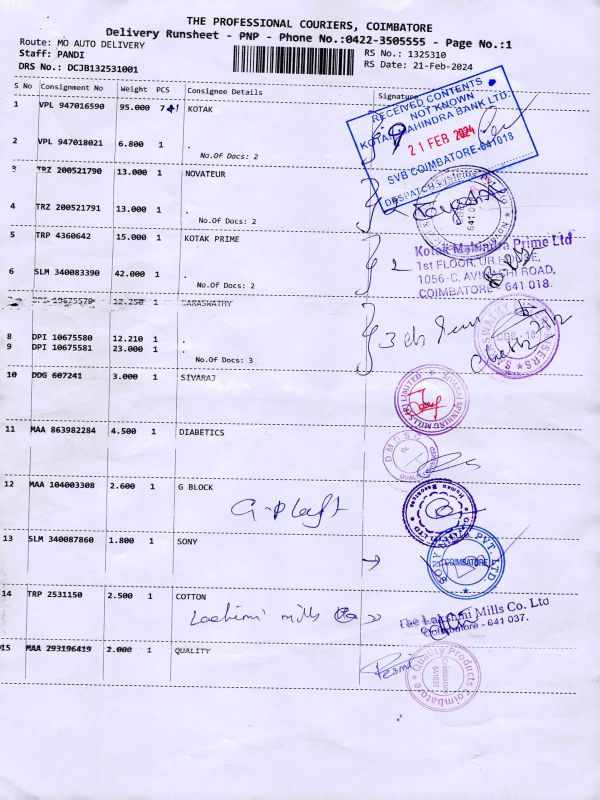 THE PROFESSIONAL COURIERS, COIMBATORE
Delivery Runsheet - PNP - Phone No.:0422-3505555 - Page No.:1
Route: MO AUTO DELIVERY RS No.: 1325310
Staff: PANDI RS Date: 21-Feb-2024
DRS No.: DCJB132531001
S No Consignment No Weight PCS Consignee Details Signature
1 VPL 947016590 95.000 KOTAK
RECEIVED CONTENTS
NOT KNOWN
KOTAK MAHINDRA BANK LTD.
21 FEB 2024
SVB COIMBATORE-641018
2 VPL 947018021 6.800 1 .
No.Of Docs: 2
3 TRZ 200521790 13.000 1 NOVATEUR
4 TRZ 200521791 13.000 1 .
No.Of Docs: 2
5 TRP 4360642 15.000 1 KOTAK PRIME
2
Kotak Mahindra Prime Ltd
1st FLOOR, UR HOUSE,
1056-C, AVINASHI ROAD,
COIMBATORE - 641 018.
6 SLM 340083390 42.000 1 .
No.Of Docs: 2
DPI 10675579 12.250 1 SARASWATHY
8 DPI 10675580 12.210 1 .
9 DPI 10675581 23.000 1 .
No.Of Docs: 3
10 DDG 607241 3.000 1 SIVARAJ
11 MAA 863982284 4.500 1 DIABETICS
12 MAA 104003308 2.600 1 G BLOCK
13 SLM 340087860 1.800 1 SONY
SONY PVT. LTD.
COIMBATORE
14 TRP 2531150 2.500 1 COTTON
mills
The Lakshmi Mills Co. Ltd
Coimbatore - 641 037.
15 MAA 293196419 2.000 1 QUALITY
Quality Products
Coimbatore
641037